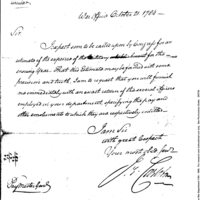 War Office October 21. 1784
Sir
I expect soon to be called upon by Congress for an
estimate of the expences of the military establishment for the
ensuing Year. That this Estimate may be formed with some
precision and truth I am to request that you will furnish
me immediately with an exact return of the several Officers
employed in your department, specifying the pay and
other emoluments to which they are respectively entitled.
I am Sir
with great Respect
Your most obed. Serv.